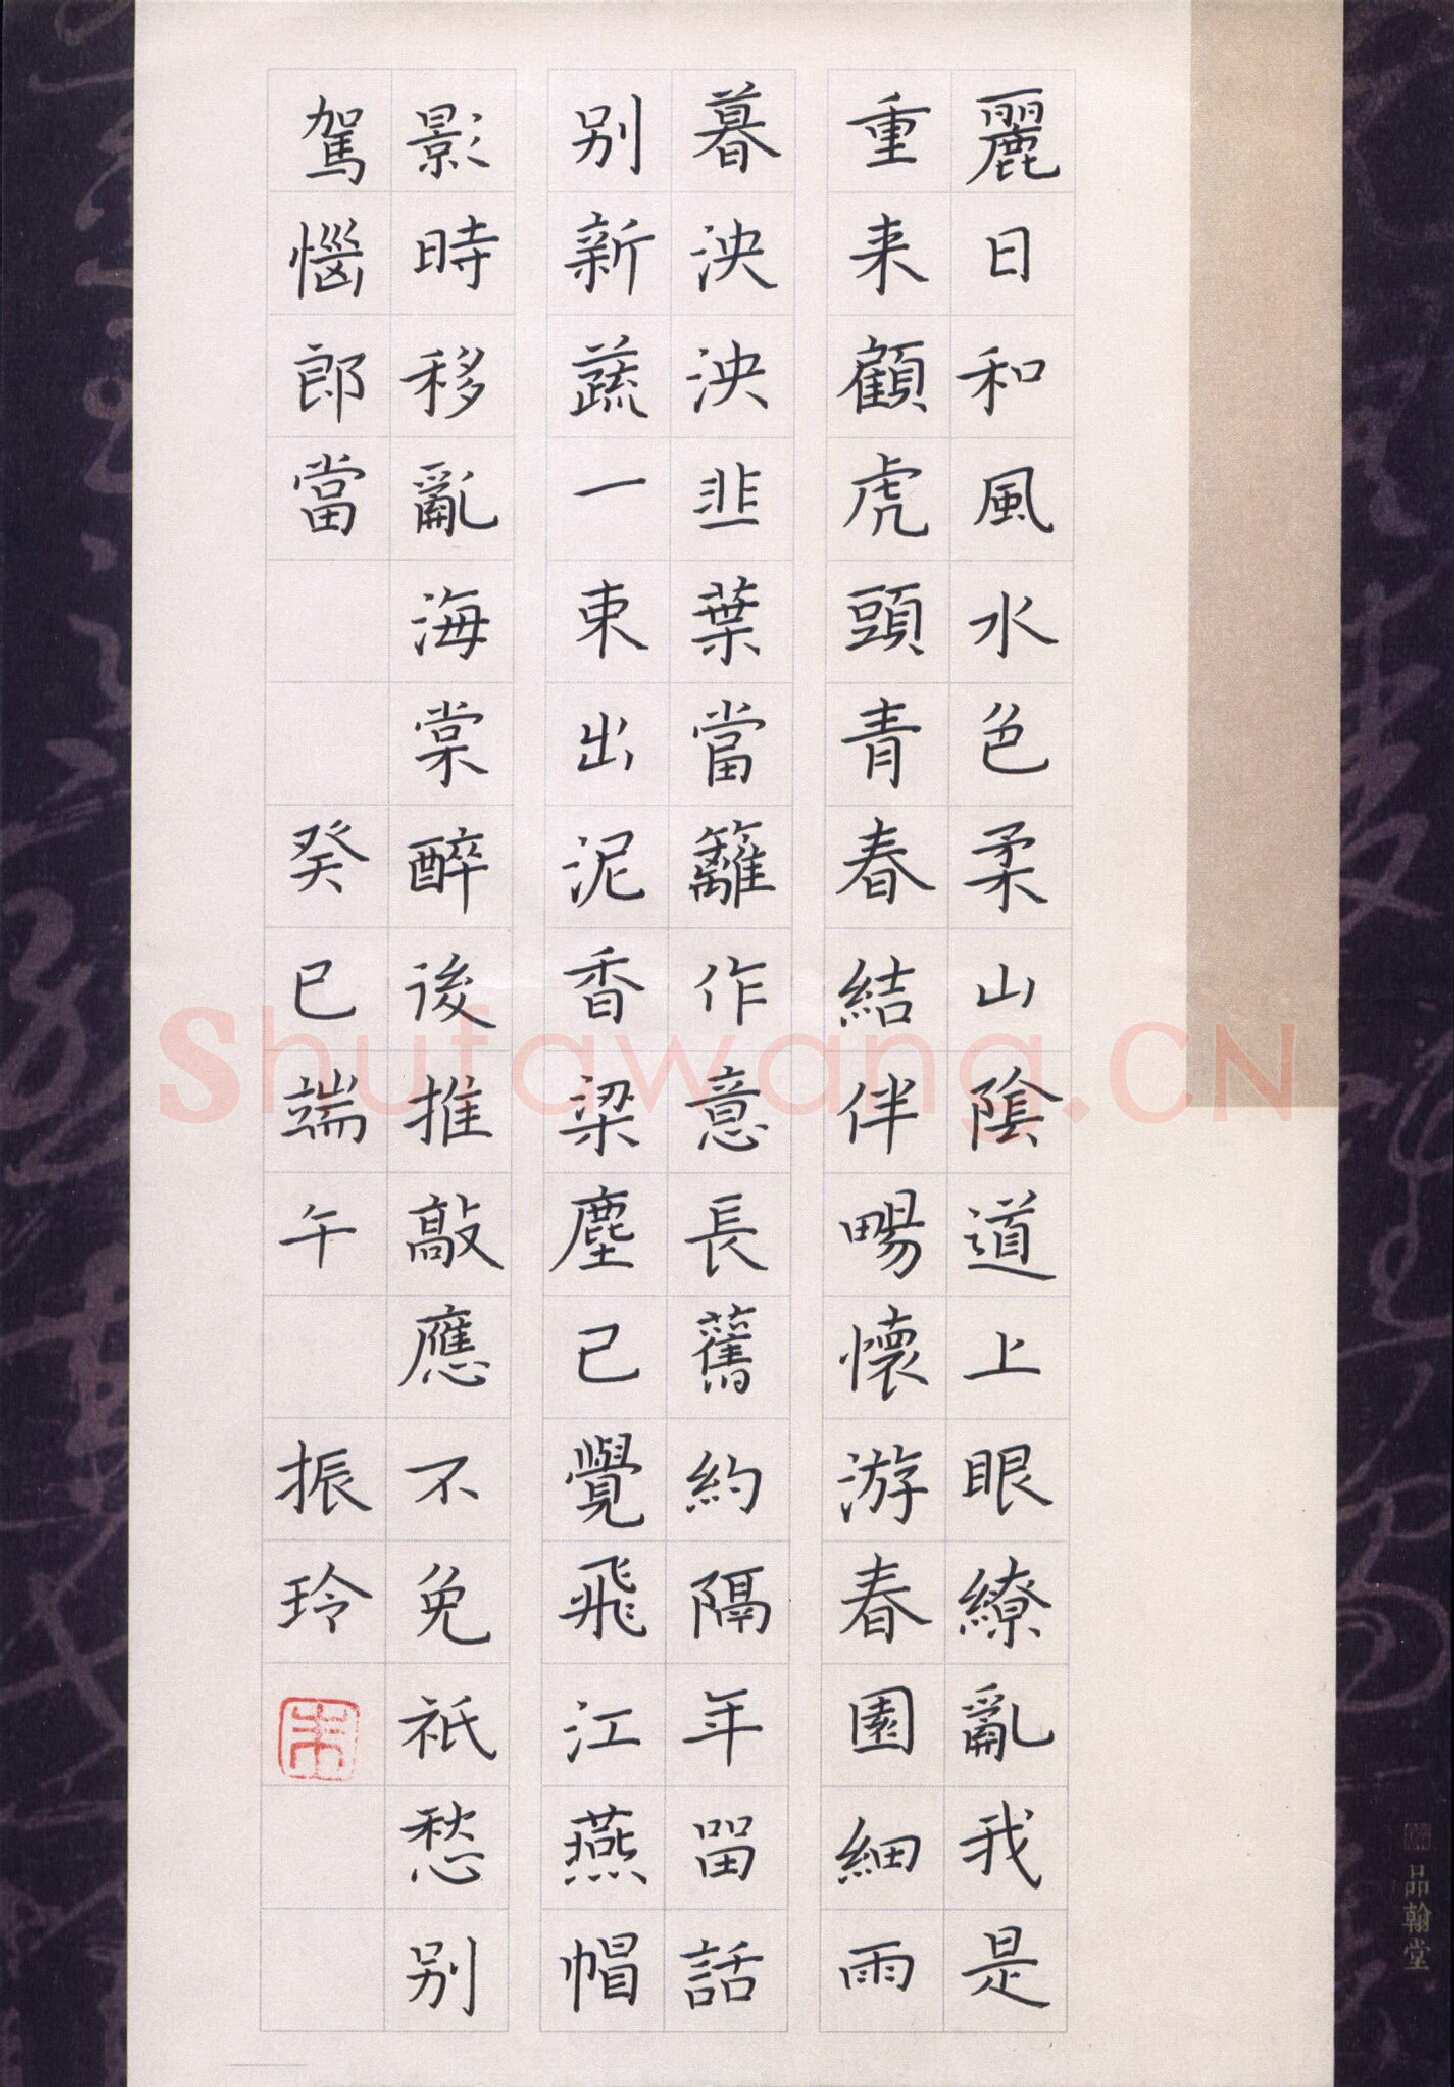 麗日和風水色柔山陰道上眼繚亂我是
重来顧虎頭青春結伴暢懷游春園細雨
暮泱泱韭葉當籬作意長舊約隔年留話
别新蔬一束出泥香梁塵已覺飛江燕帽
影時移亂海棠醉後推敲應不免祇愁别
駕惱郎當
癸巳端午
振玲
朱
品翰堂
Shufawang.CN